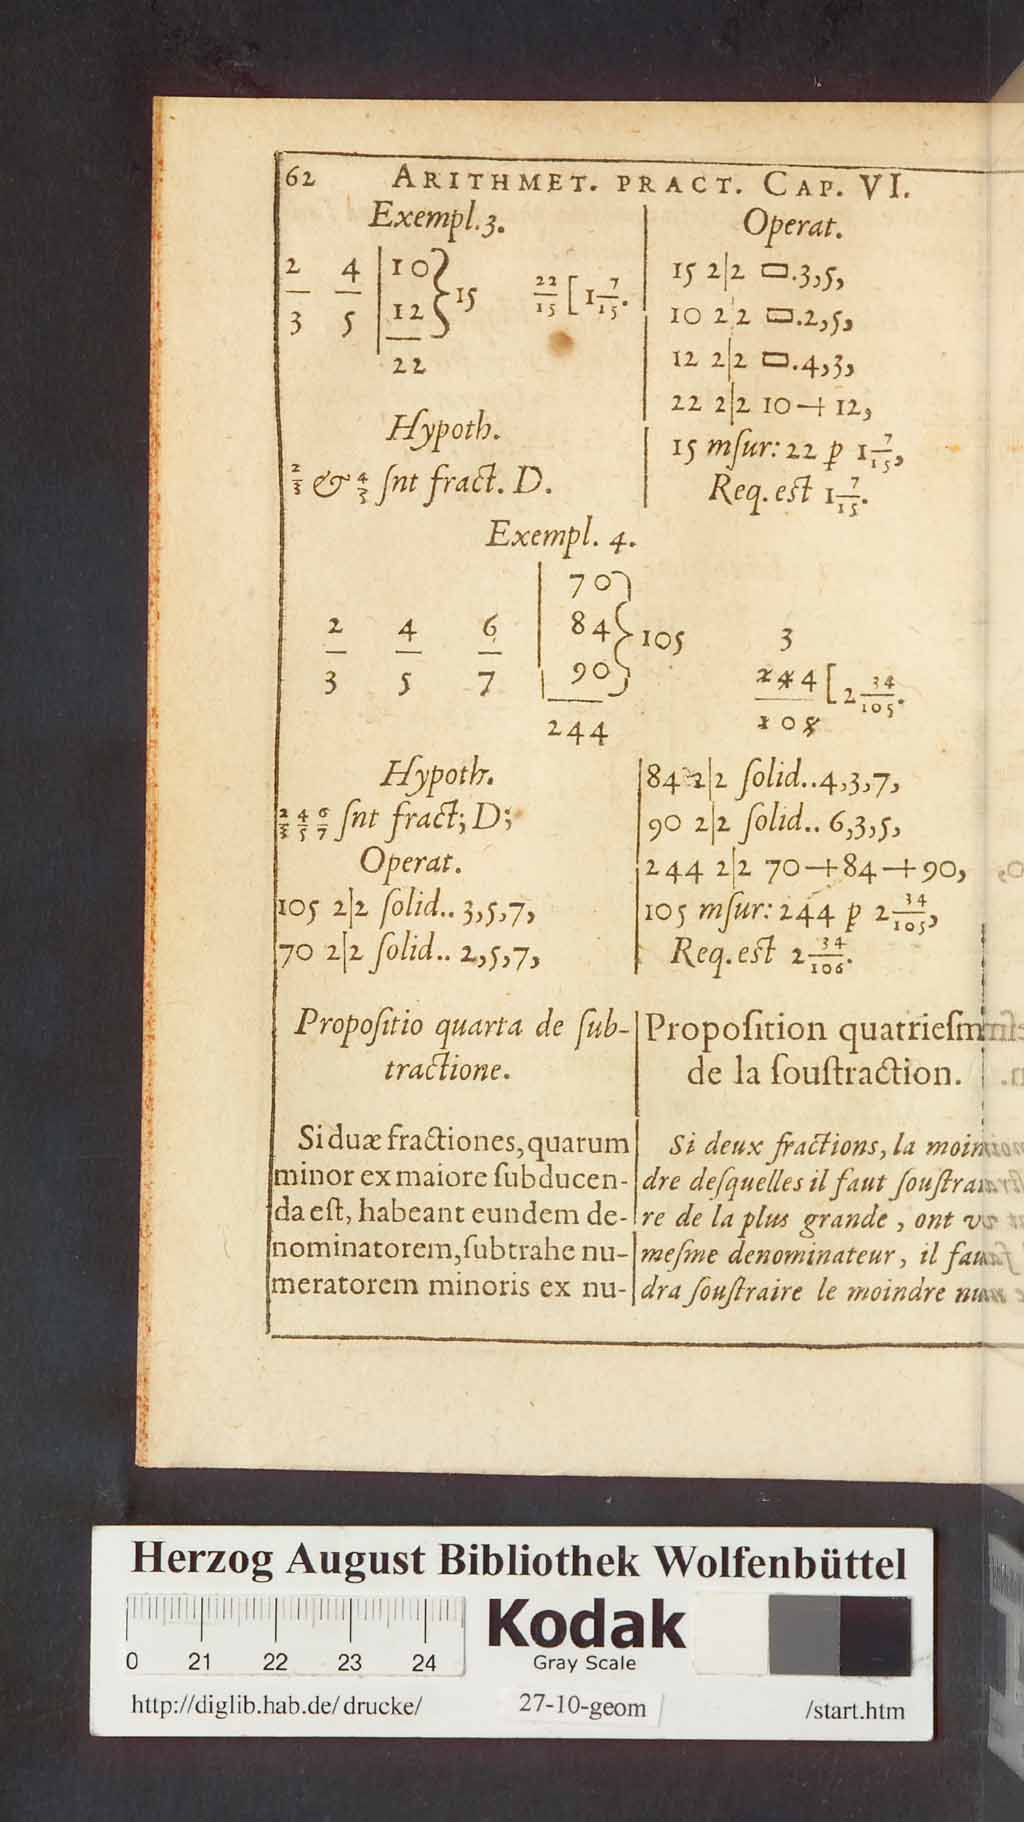 62 ARITHMET. PRACT. CAP. VI.
Exempl. 3.
2 4 | 10
3 5 | 12 } 15 22/15 [1 7/15.
22
Hypoth.
2/3 & 4/5 ſnt fract. D.
Operat.
15 2|2 ▭.3,5,
10 2|2 ▭.2,5,
12 2|2 ▭.4,3,
22 2|2 10+12,
15 mſur: 22 p 1 7/15,
Req. eſt 1 7/15.
Exempl. 4.
70
2 4 6 | 84 } 105 3
3 5 7 | 90 244 [2 34/105.
244 105
Hypoth.
2/3 4/5 6/7 ſnt fract; D;
Operat.
105 2|2 ſolid.. 3,5,7,
70 2|2 ſolid.. 2,5,7,
84 2|2 ſolid..4,3,7,
90 2|2 ſolid.. 6,3,5,
244 2|2 70+84+90,
105 mſur: 244 p 2 34/105,
Req. eſt 2 34/106.
Propoſitio quarta de ſub-
tractione.
Si duæ fractiones, quarum
minor ex maiore ſubducen-
da eſt, habeant eundem de-
nominatorem, ſubtrahe nu-
meratorem minoris ex nu-
Propoſition quatrieſm
de la ſouſtraction.
Si deux fractions, la moin
dre deſquelles il faut ſouſtrai
re de la plus grande, ont v
meſme denominateur, il fau
dra ſouſtraire le moindre num
Herzog August Bibliothek Wolfenbüttel
0 21 22 23 24
Kodak
Gray Scale
http://diglib.hab.de/drucke/ 27-10-geom /start.htm